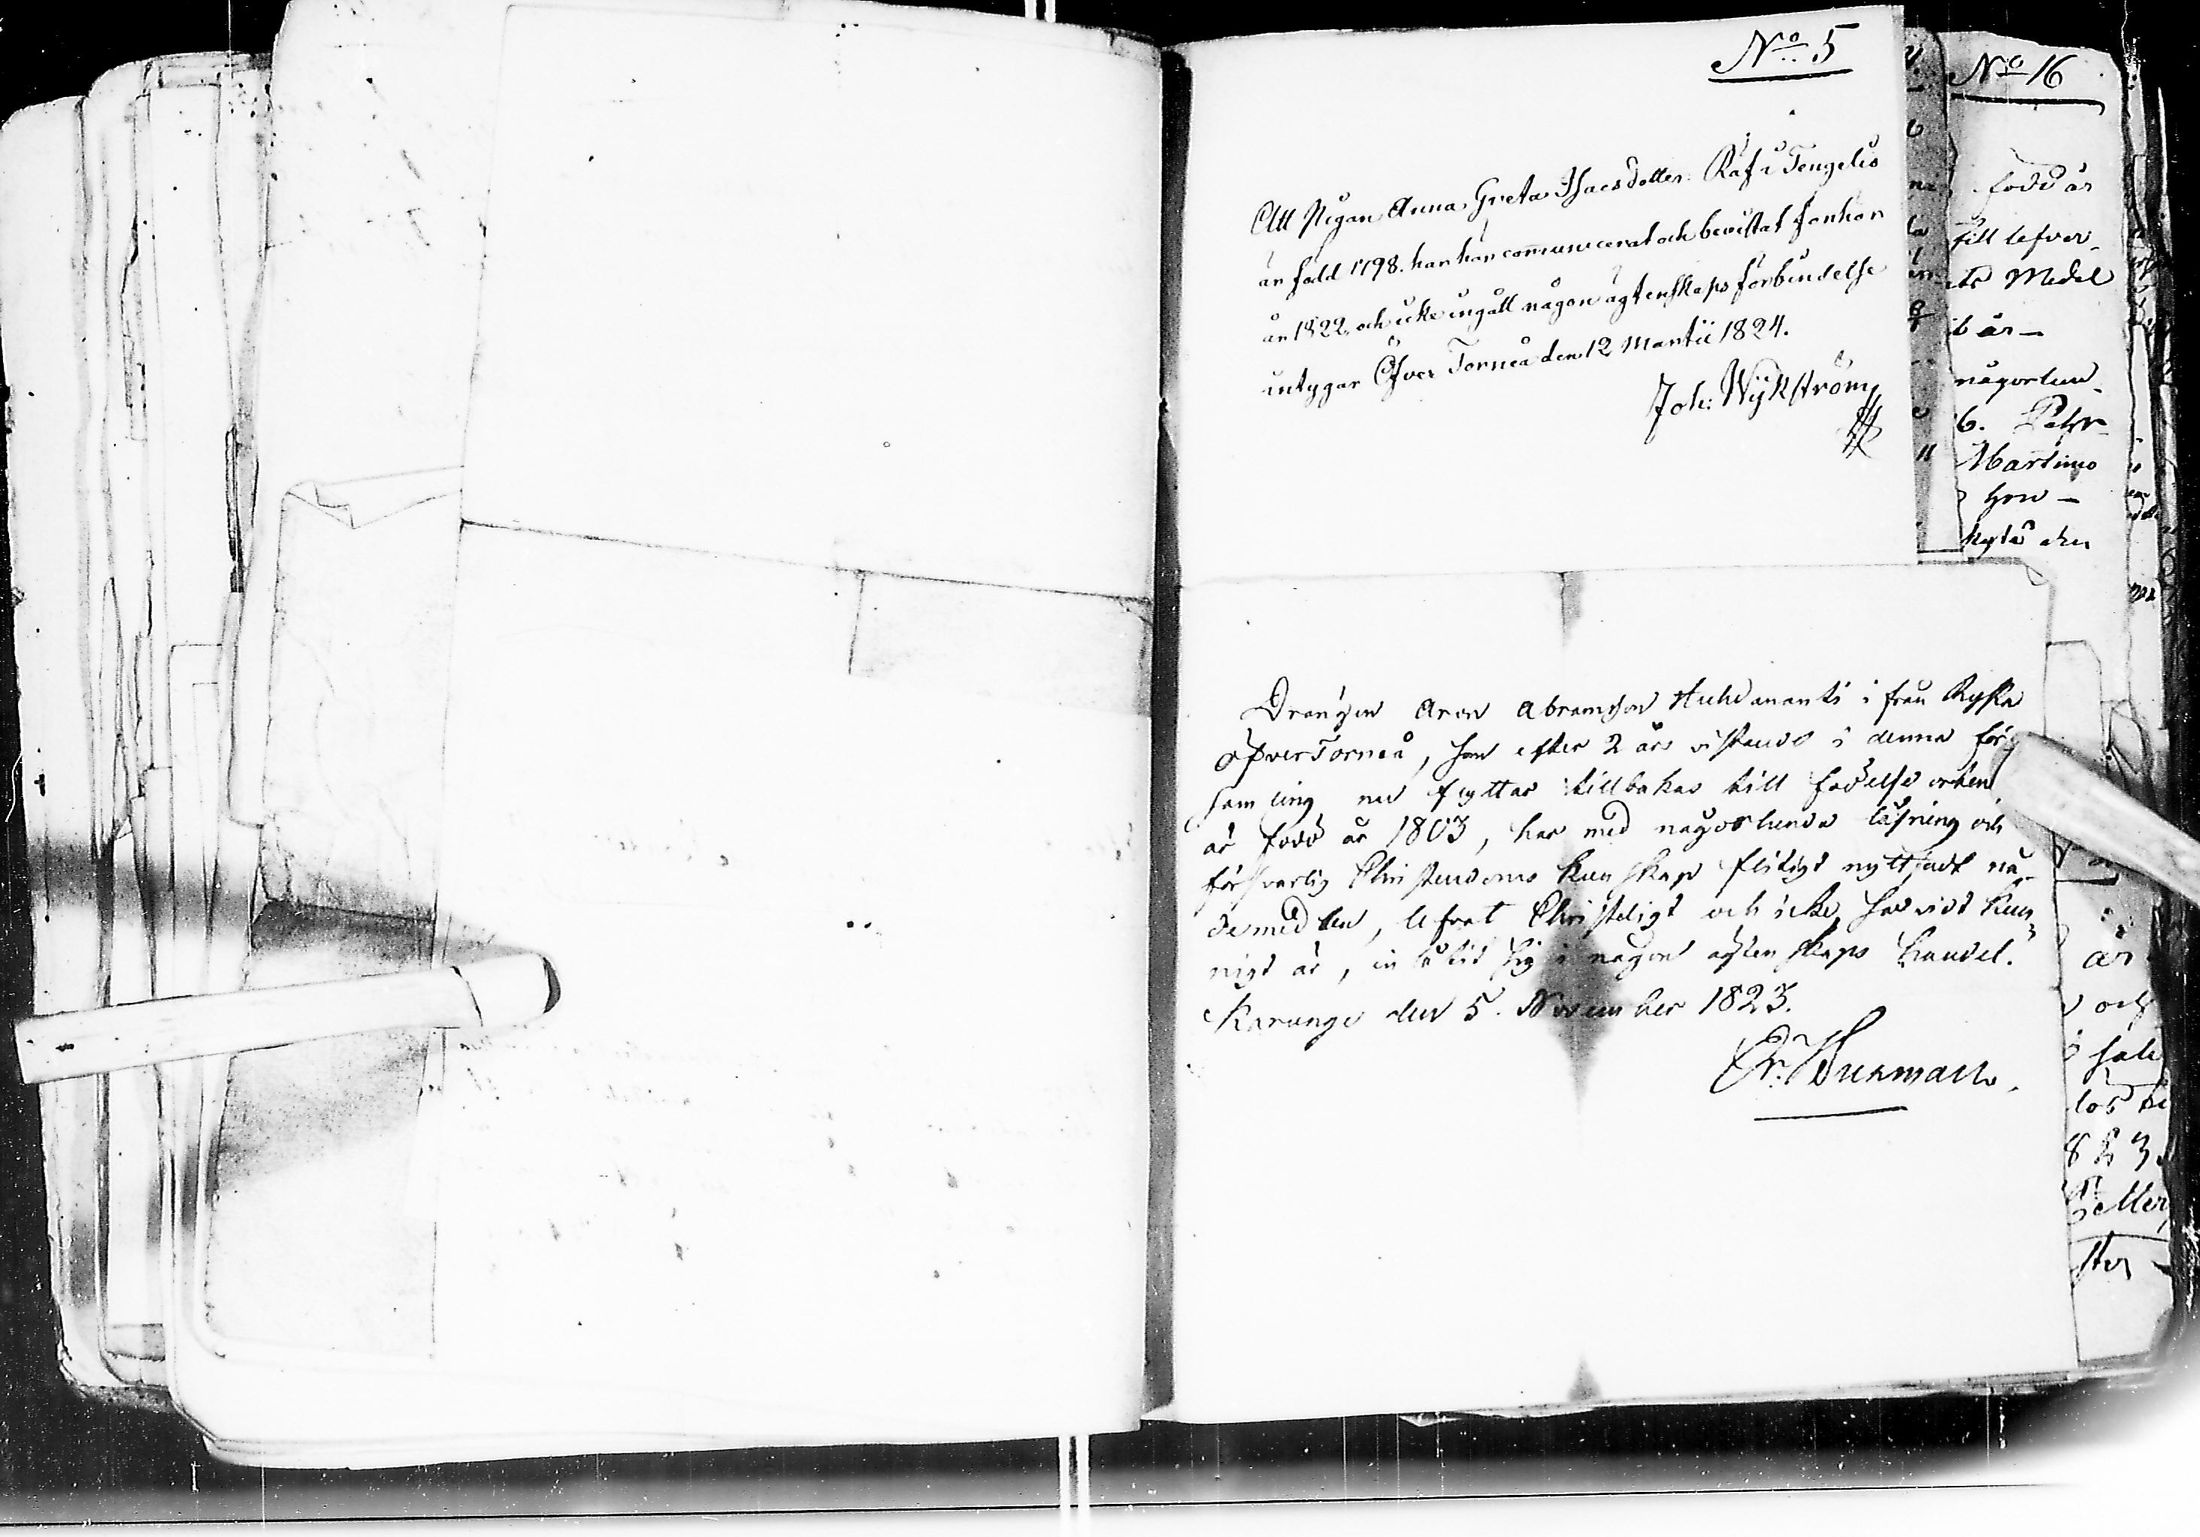 No 5
Att Pigan Anna Greta Isacsdotter Räf i Tengeliö
är född 1798. har här communicerat och bevistat förhör
år 1822, och icke ingått någon ägtenskaps förbindelse
intygar Öfver Torneå den 12 Martii 1824.
Joh: Wijkström
Drängen Aron Abramsson Huhdananti i från Ryska
öfverTorneå, som efter 2 års vistande i denna för
samling nu flyttar tillbakas till födelse orten
är född år 1803, har med någorlunda läsning och
försvarlig Christendoms kunskap flitigt nyttjadt nå-
demedlen, lefvat Christeligt och icke, så vidt kun-
nigt är, inlåtit sig i någon agtenskaps handel.
Karungi den 5. November 1823.
No 16
född år
till lefver-
ets Medel
år -
någorlun-
6. Pehr
Martimo
hon -
är
och
823.